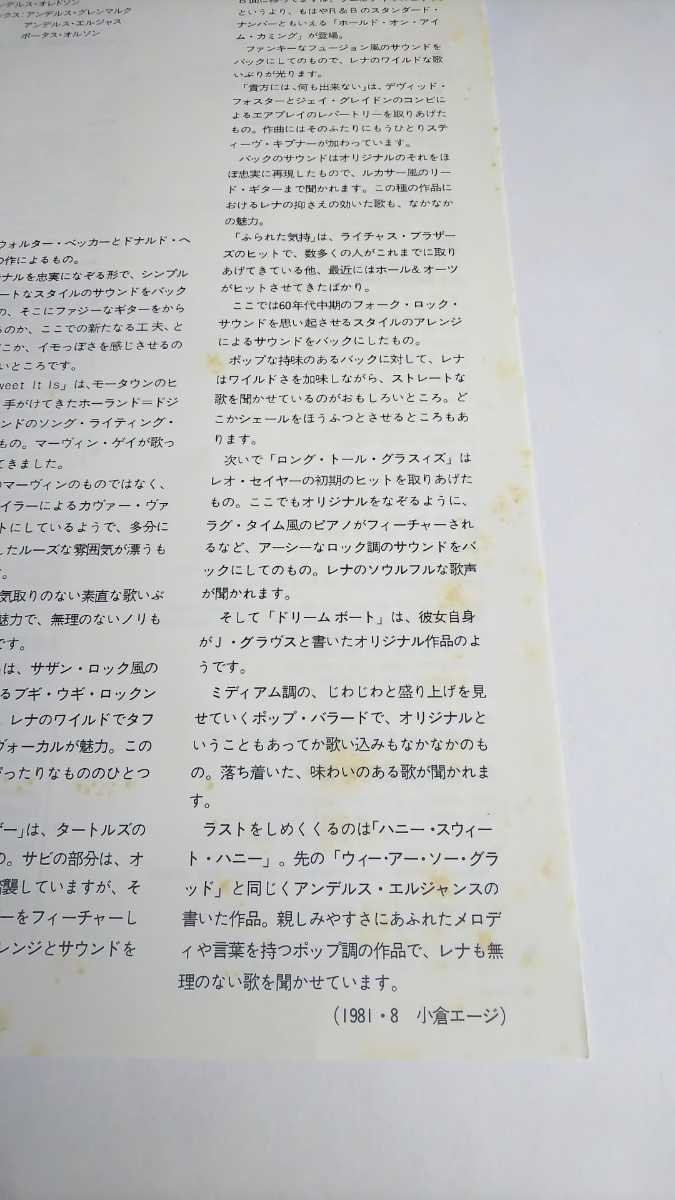 ンデルス・オレドソン
ックス:アンデルス・グレンマルク
アンデルス・エルジャス
ポータス・オルソン
ウォルター・ベッカーとドナルド・ヘ
の作によるもの。
ナルを忠実になぞる形で、シンプル
ートなスタイルのサウンドをバック
の、そこにファジーなギターをから
るのか、ここでの新たなる工夫、と
どこか、イモっぽさを感じさせるの
いところです。
weet It Is」は、モータウンのヒ
手がけてきたホーランド=ドジ
ンドのソング・ライティング・
もの。マーヴィン・ゲイが歌っ
てきました。
のマーヴィンのものではなく、
イラーによるカヴァー・ヴァ
トにしているようで、多分に
したルーズな雰囲気が漂うも
す。
気取りのない素直な歌いぶ
魅力で、無理のないノリも
です。
は、サザン・ロック風の
るブギ・ウギ・ロックン
。レナのワイルドでタフ
ヴォーカルが魅力。この
ぴったりなもののひとつ
ザー」は、タートルズの
の。サビの部分は、オ
踏襲していますが、そ
ーをフィーチャーし
レンジとサウンドを
というより、もはやR&Bのスタンダード・
ナンバーともいえる「ホールド・オン・アイ
ム・カミング」が登場。
ファンキーなフュージョン風のサウンドを
バックにしてのもので、レナのワイルドな歌
いぶりが光ります。
「貴方には、何も出来ない」は、デヴィッド・
フォスターとジェイ・グレイドンのコンビに
よるエアプレイのレパートリーを取りあげた
もの。作曲にはそのふたりにもうひとりステ
ィーヴ・キプナーが加わっています。
バックのサウンドはオリジナルのそれをほ
ぼ忠実に再現したもので、ルカサー風のリー
ド・ギターまで聞かれます。この種の作品に
おけるレナの抑さえの効いた歌も、なかなか
の魅力。
「ふられた気持」は、ライチャス・ブラザー
ズのヒットで、数多くの人がこれまでに取り
あげてきている他、最近にはホール&オーツ
がヒットさせてきたばかり。
ここでは60年代中期のフォーク・ロック・
サウンドを思い起させるスタイルのアレンジ
によるサウンドをバックにしたもの。
ポップな持味のあるバックに対して、レナ
はワイルドさを加味しながら、ストレートな
歌を聞かせているのがおもしろいところ。ど
こかシェールをほうふつとさせるところもあ
ります。
次いで「ロング・トール・グラスィズ」は
レオ・セイヤーの初期のヒットを取りあげた
もの。ここでもオリジナルをなぞるように、
ラグ・タイム風のピアノがフィーチャーされ
るなど、アーシーなロック調のサウンドをバ
ックにしてのもの。レナのソウルフルな歌声
が聞かれます。
そして「ドリーム ボート」は、彼女自身
がJ・グラヴスと書いたオリジナル作品のよ
うです。
ミディアム調の、じわじわと盛り上げを見
せていくポップ・バラードで、オリジナルと
いうこともあってか歌い込みもなかなかのも
の。落ち着いた、味わいのある歌が聞かれま
す。
ラストをしめくくるのは「ハニー・スウィー
ト・ハニー」。先の「ウィー・アー・ソー・グラ
ッド」と同じくアンデルス・エルジャンスの
書いた作品。親しみやすさにあふれたメロデ
ィや言葉を持つポップ調の作品で、レナも無
理のない歌を聞かせています。
(1981・8 小倉エージ)